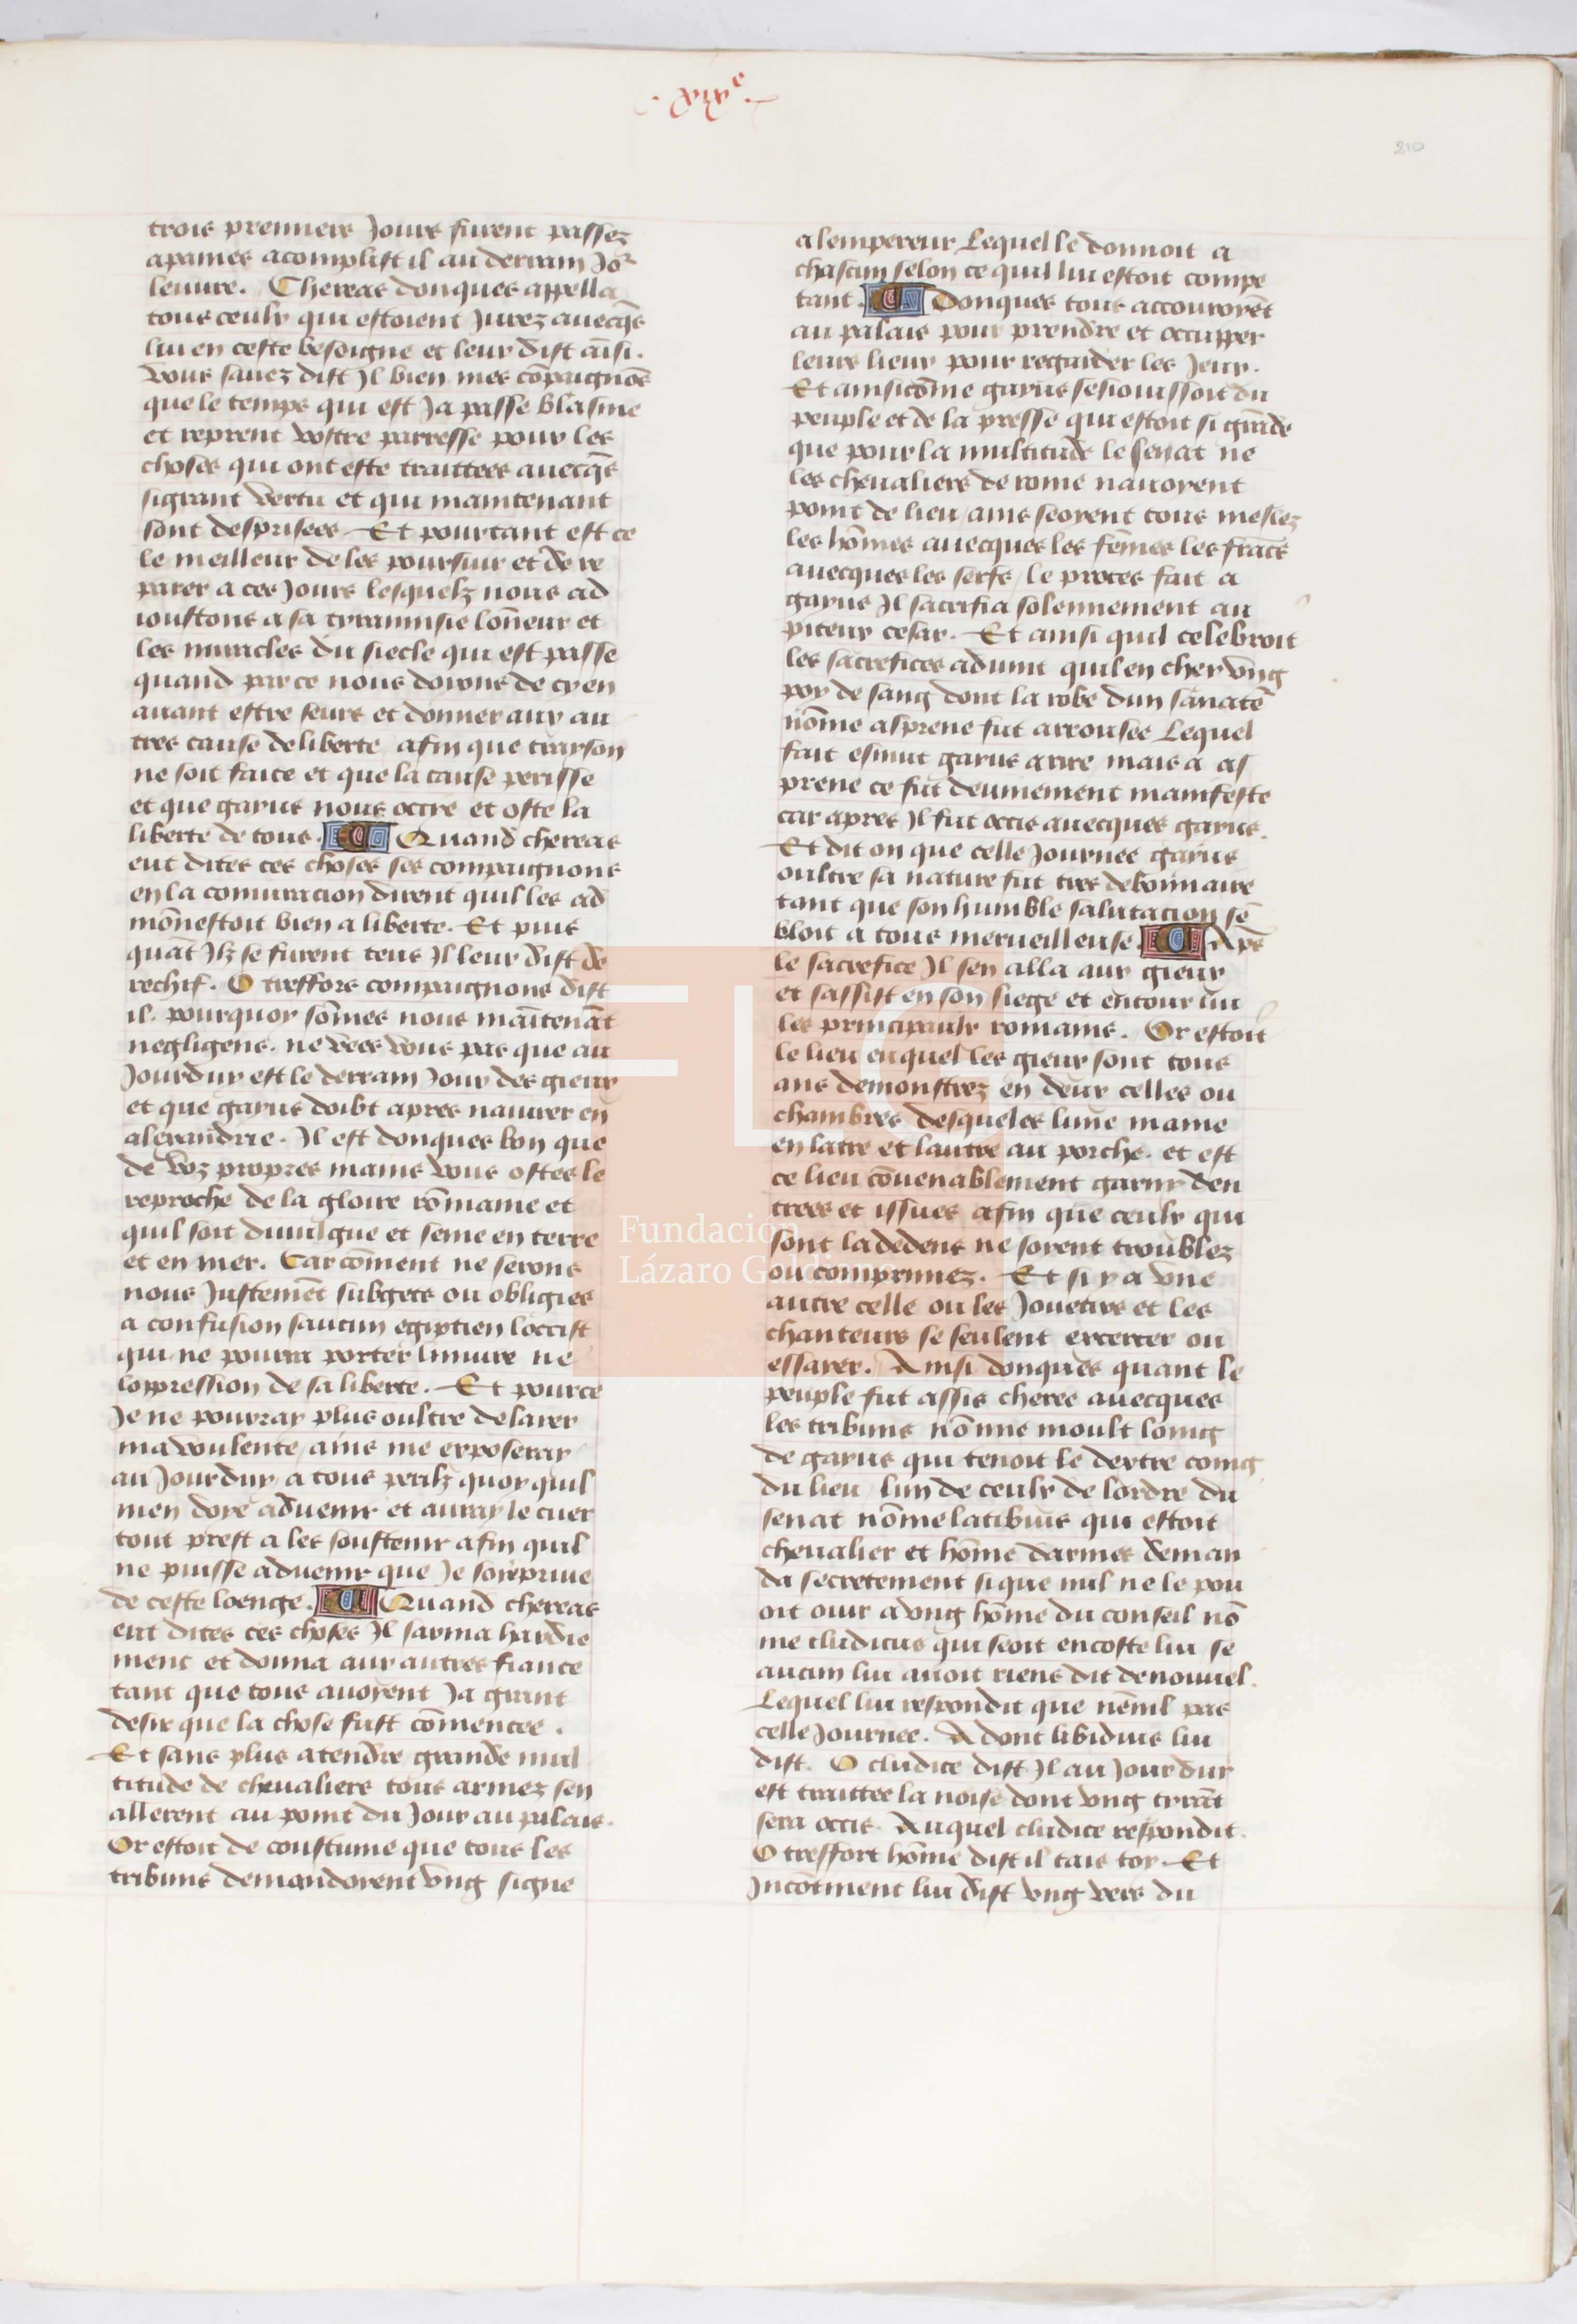 . xixe.
210
trois premiers Jours furent passez
apaines acomplist il au derrain Jor
leuure. Chereas donques appella
tous ceulx qui estoient Jurez auecqs
lui en ceste besoigne et leur dist aīsi.
Vous sauez dist Il bien mes cōpaignōs
que le temps qui est Ja passe blasme
et reprent vostre parresse pour les
choses qui ont este traittees auecqs
si grant vertu et qui maintenant
sont desprisees. Et pourtant est ce
le meilleur de les poursuir et de re
parer a ces Jours lesquelz nous ad
ioustons a sa tyrannisie lōneur et
les miracles du siecle qui est passe
quand par ce nous doions de cy en
auant estre seurs et donner aux au
tres cause de liberte afin que trayson
ne soit faicte et que la cause perisse
et que gayus nous occie et oste la
liberte de tous. Quand chereas
eut dites ces choses ses compaignons
en la coniuracion dirent quil les ad
mōnestoit bien a liberte. Et puis
quāt Ilz se furent teus Il leur dist de
rechif. O tresfors compaignons dist
il. pourquoy sōmes nous maītenāt
negligens. ne vees vous pas que au
Jourduy est le derrain Jour des gieux
et que gayus doibt apres nauirer en
alexandrie. Il est donques bon que
de voz propres mains vous ostes le
reproche de la gloire rōmaine et
quil soit diuulgue et seme en terre
et en mer. Car cōment ne serons
nous Justemēt subgets ou obligies
a confusion saucun egiptien loccist
qui ne pourra porter liniure ne
loppression de sa liberte. Et pource
Je ne pourray plus oultre delaier
ma voulente ains me exposeray
au Jourduy a tous perilz quoy quil
men doye aduenir et auray le cuer
tout prest a les soustenir afin quil
ne puisse aduenir que Je soie priue
de ceste loenge. Quand chereas
eut dites ces choses Il sarma hardie
ment et donna aux autres fiance
tant que tous auoyent Ja grant
desir que la chose fust cōmencee.
Et sans plus atendre grande mul
titude de cheualiers tous armez sen
allerent au point du Jour au palais.
Or estoit de coustume que tous les
tribuns demandoient vng signe
a lempereur Lequel le donnoit a
chascun selon ce quil lui estoit compe
tant. Donques tous accouroyēt
au palais pour prendre et occupper
leurs lieux pour regarder les Jeux.
Et ainsi cōme gayus sesiouissoit du
peuple et de la presse qui estoit si grāde
que pour la multitude le senat ne
les cheualiers de rome nauoyent
point de lieu ains seoyent tous meslez
les hōmes auecques les fēmes les frācs
auecques les serfs / le proces fait a
gayus Il sacrifia solennement au
piteux cesar. Et ainsi quil celebroit
les sacrefices aduint quil en chey vng
poy de sang dont la robe dun sanatē
nōme asprene fut arrousee Lequel
fait esmut gayus a rire mais a as
prene ce fut deuinement manifeste
car apres Il fut occis auecques gayus.
Et dit on que celle Journee gayus
oultre sa nature fut tres debonnaire
tant que son humble salutacion sē
bloit a tous merueilleuse. Aps
le sacrefice Il sen alla aux gieux
et sassist en son siege et entour lui
les principaulx romains. Or estoit
le lieu en quel les gieux sont tous
ans demonstrez en deux celles ou
chambres desqueles lune maine
en laire et lautre au porche. et est
ce lieu cōuenablement garny den
trees et issues afin que ceulx qui
sont la dedens ne soyent troublez
ou comprimez. Et si y a vne
autre celle ou les Joueurs et les
chanteurs se seulent excercer ou
essayer. Ainsi donques quant le
peuple fut assis cheree auecques
les tribuns nō mie moult loing
de gayus qui tenoit le dextre coing
du lieu lun de ceulx de lordre du
senat nōme latibius qui estoit
cheualier et hōme darmes deman
da secretement si que nul ne le pou
oit ouir a vng hōme du conseil nō
me cludicus qui seoit encoste lui se
aucun lui auoit riens dit de nouuel.
Lequel lui respondit que nēnil pas
celle Journee. A dont libidius lui
dist. O cludice dist Il au Jourduy
est traittee la noise dont vng tyrāt
sera occis. Auquel cludice respondit.
O tresfort hōme dist il tais toy. Et
Incōtinent lui dist vng vers du
FLG
Fundación
Lázaro Galdiano